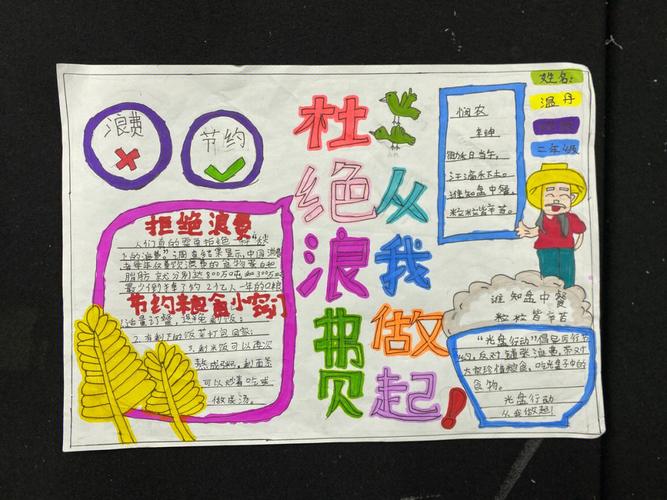 浪费
节约
杜绝浪费
从我做起!
悯农
锄禾日当午,
汗滴禾下土。
谁知盘中餐,
粒粒皆辛苦。
姓名:
温丹
二年级
拒绝浪费
人们真的需要拒绝
上的浪费"。调查结果显示,中国消费
者每年仅餐饮浪费的食物蛋白和
脂肪 就分别达800万吨和300万吨
最少倒掉了约2亿人一年的口粮
节约粮食小窍门
2.有剩下的饭菜打包回家;
3.剩米饭可以再次
熬成粥,剩面条
可以炒着吃或
做成汤。
谁知盘中餐
粒粒皆辛苦
"光盘行动"倡导厉行节
约,反对铺张浪费,带动
大家珍惜粮食,吃光盘子中的
食物。
光盘行动
从我做起!